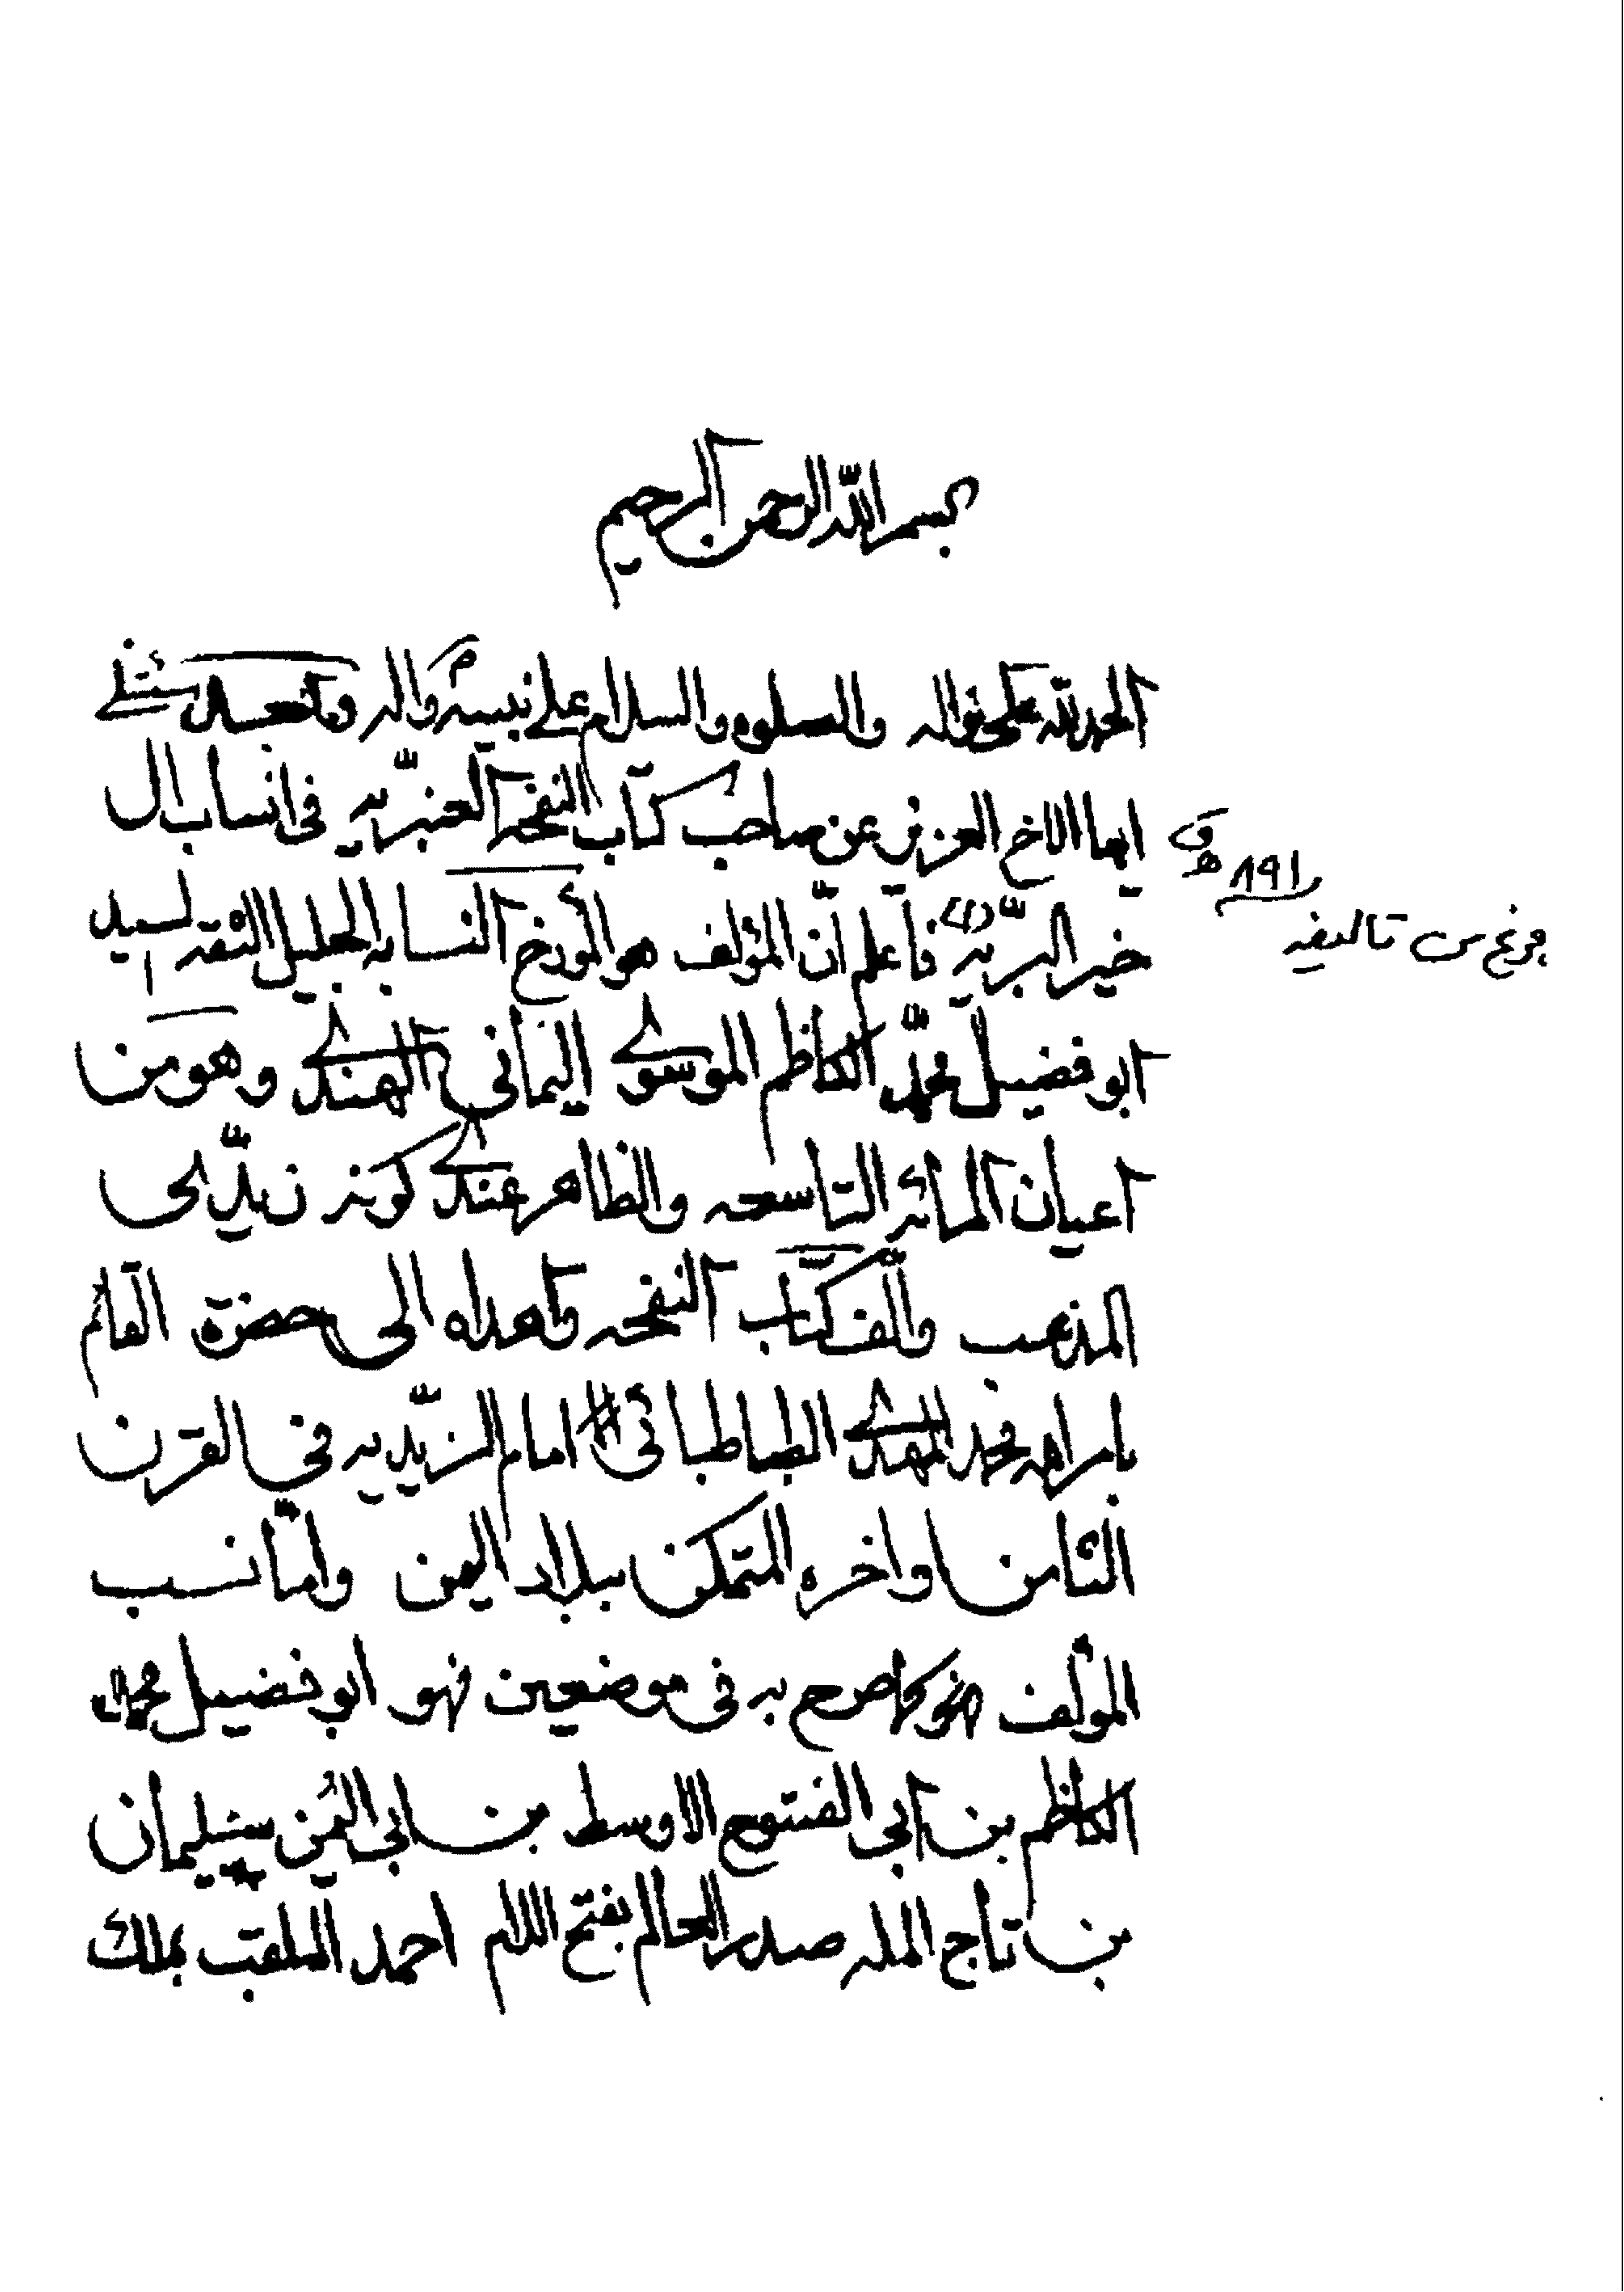 بسم الله الرحمن الرحيم
الحمد لله على نواله والصلوه والسلام على نبيه واله سئلتني
ايها الاخ العزيز عن صاحب كتاب النفحه العنبريّه في انساب ال
خير البريّه (١) فاعلم انّ المؤلف هو المورخ النسابه الجليل الثقه السيد
ابو فضيل محمّد الكاظم الموسوي اليماني الهندي وهو من
اعيان المائه التاسعه والظاهر عندي كونه زيدّى
المذهب والّف كتاب النفحه واهداه الى حضرة القائم
بامر الله محمد المهدي الطباطبائي امام الزيّديه في القرن
الثامن اواخره المتمكن ببلاد اليمن واما نسب
المؤلف كما صرح به في موضعين فهو ابو فضيل محمد
الكاظم بن ابي الفتوح الاوسط بن ابي اليُمن سليمان
بن تاج المله صدر العالم بفتح اللام احمد الملقب بملك
(١) فرغ من تاليفه
٨٩١ هـ ق